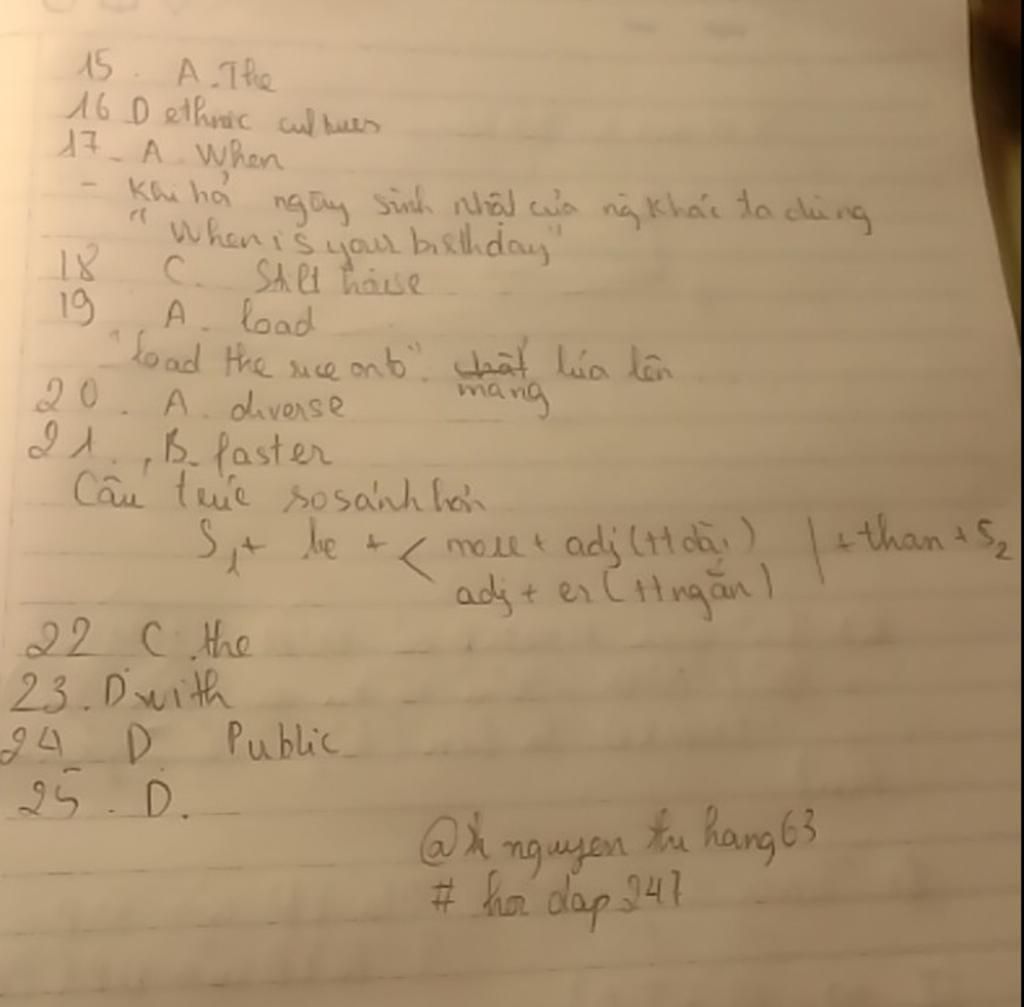 15. A. The
16 D ethnic cultures
17. A. When
- Khi hỏi ngày sinh nhật của ng khác ta dùng
"When is your birthday"
18 C. Stilt house
19 A. load
"load the rice onto": lúa lên
mang
20. A. diverse
21. B. faster
Cấu trúc so sánh hơn
S1 + be + < more + adj (tt dài) | + than + S2
adj + er (tt ngắn)
22 C. the
23. D with
24 D Public
25. D.
nguyen thu hang63
# hoi dap 247